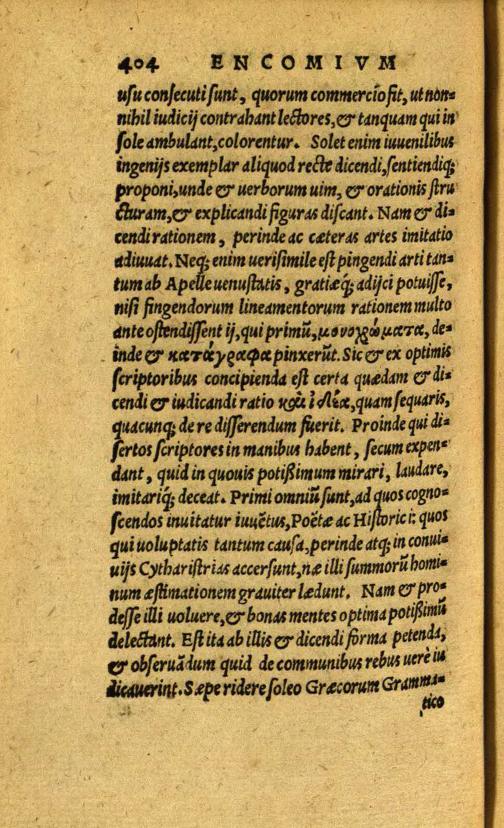 404 ENCOMIVM
usu consecuti sunt, quorum commercio fit, ut non=
nihil iudicij contrahant lectores, & tanquam qui in
sole ambulant, colorentur. Solet enim iuuenilibus
ingenijs exemplar aliquod recte dicendi, sentiendiq;
proponi, unde & uerborum uim, & orationis stru
cturam, & explicandi figuras discant. Nam & di=
cendi rationem, perinde ac cæteras artes imitatio
adiuuat. Neq; enim uerisimile est pingendi arti tan=
tum ab Apelle uenustatis, gratiæq́; adijci potuisse,
nisi fingendorum lineamentorum rationem multo
ante ostendissent ij, qui primũ, μονοχρώματα, de=
inde & κατάγραφα pinxerũt. Sic & ex optimis
scriptoribus concipienda est certa quædam & di=
cendi & iudicandi ratio καὶ ἰδέα, quam sequaris,
quacunq; de re disserendum fuerit. Proinde qui di=
sertos scriptores in manibus habent, secum expen=
dant, quid in quouis potißimum mirari, laudare,
imitariq́; deceat. Primi omniũ sunt, ad quos cogno=
scendos inuitatur iuuẽtus, Poëtæ ac Historici: quos
qui uoluptatis tantum causa, perinde atq; in conui=
uijs Cytharistrias accersunt, næ illi summorũ homi=
num æstimationem grauiter lædunt. Nam & pro=
desse illi uoluere, & bonas mentes optima potißimũ
delectant. Est ita ab illis & dicendi forma petenda,
& obseruãdum quid de communibus rebus uerè iu
dicauerint. Sæpe ridere soleo Græcorum Gramma=
tico